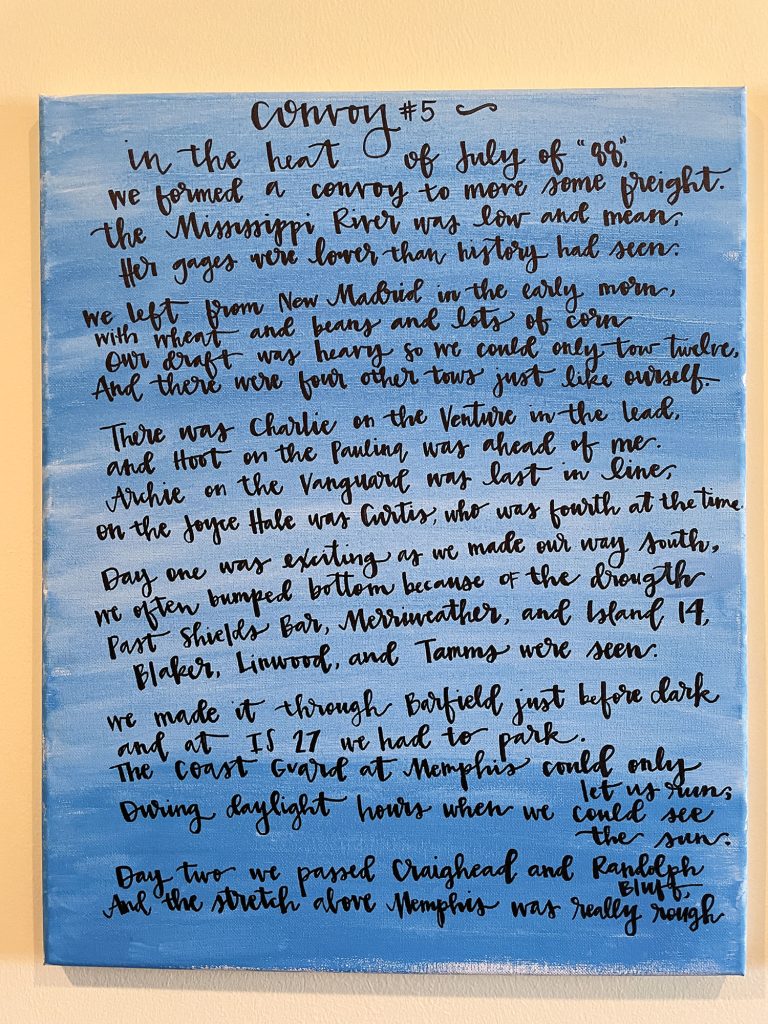 Convoy #5
in the heat of July of "88",
we formed a convoy to move some freight.
the Mississippi River was low and mean,
Her gages were lower than history had seen.
we left from New Madrid in the early morn,
with wheat and beans and lots of corn
Our draft was heavy so we could only tow twelve,
And there were four other tows just like ourself.
There was Charlie on the Venture in the lead,
and Hoot on the Paulina was ahead of me.
Archie on the Vanguard was last in line,
on the Joyce Hale was Curtis, who was fourth at the time.
Day one was exciting as we made our way south,
we often bumped bottom because of the drougth
Past Shields Bar, Merriweather, and Island 14,
Blaker, Linwood, and Tamms were seen.
we made it through Barfield just before dark
and at IS 27 we had to park.
The Coast Guard at Memphis could only
let us run,
During daylight hours when we could see
the sun.
Day two we passed Craighead and Randolph
Bluff,
And the stretch above Memphis was really rough